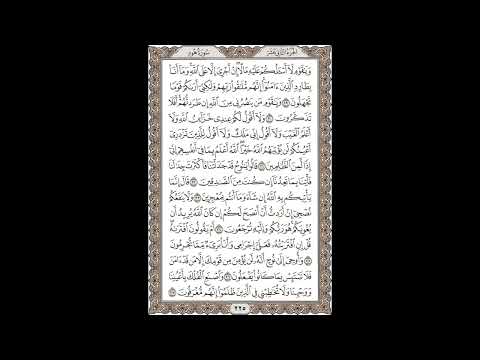 الجزء الثاني عشر سورة هود
وَيَٰقَوْمِ لَآ أَسْـَٔلُكُمْ عَلَيْهِ مَالًا ۖ إِنْ أَجْرِىَ إِلَّا عَلَى ٱللَّهِ ۚ وَمَآ أَنَا۠
بِطَارِدِ ٱلَّذِينَ ءَامَنُوٓا۟ ۚ إِنَّهُم مُّلَٰقُوا۟ رَبِّهِمْ وَلَٰكِنِّىٓ أَرَىٰكُمْ قَوْمًا
تَجْهَلُونَ ٢٩ وَيَٰقَوْمِ مَن يَنصُرُنِى مِنَ ٱللَّهِ إِن طَرَدتُّهُمْ ۚ أَفَلَا
تَذَكَّرُونَ ٣٠ وَلَآ أَقُولُ لَكُمْ عِندِى خَزَآئِنُ ٱللَّهِ وَلَآ
أَعْلَمُ ٱلْغَيْبَ وَلَآ أَقُولُ إِنِّى مَلَكٌ وَلَآ أَقُولُ لِلَّذِينَ تَزْدَرِىٓ
أَعْيُنُكُمْ لَن يُؤْتِيَهُمُ ٱللَّهُ خَيْرًا ۖ ٱللَّهُ أَعْلَمُ بِمَا فِىٓ أَنفُسِهِمْ ۖ إِنِّىٓ
إِذًا لَّمِنَ ٱلظَّٰلِمِينَ ٣١ قَالُوا۟ يَٰنُوحُ قَدْ جَٰدَلْتَنَا فَأَكْثَرْتَ جِدَٰلَنَا
فَأْتِنَا بِمَا تَعِدُنَآ إِن كُنتَ مِنَ ٱلصَّٰدِقِينَ ٣٢ قَالَ إِنَّمَا
يَأْتِيكُم بِهِ ٱللَّهُ إِن شَآءَ وَمَآ أَنتُم بِمُعْجِزِينَ ٣٣ وَلَا يَنفَعُكُمْ
نُصْحِىٓ إِنْ أَرَدتُّ أَنْ أَنصَحَ لَكُمْ إِن كَانَ ٱللَّهُ يُرِيدُ أَن
يُغْوِيَكُمْ ۚ هُوَ رَبُّكُمْ وَإِلَيْهِ تُرْجَعُونَ ٣٤ أَمْ يَقُولُونَ ٱفْتَرَىٰهُ ۖ
قُلْ إِنِ ٱفْتَرَيْتُهُۥ فَعَلَىَّ إِجْرَامِى وَأَنَا۠ بَرِىٓءٌ مِّمَّا تُجْرِمُونَ ٣٥
وَأُوحِىَ إِلَىٰ نُوحٍ أَنَّهُۥ لَن يُؤْمِنَ مِن قَوْمِكَ إِلَّا مَن قَدْ ءَامَنَ
فَلَا تَبْتَئِسْ بِمَا كَانُوا۟ يَفْعَلُونَ ٣٦ وَٱصْنَعِ ٱلْفُلْكَ بِأَعْيُنِنَا
وَوَحْيِنَا وَلَا تُخَٰطِبْنِى فِى ٱلَّذِينَ ظَلَمُوٓا۟ ۚ إِنَّهُم مُّغْرَقُونَ ٣٧
٢٢٥